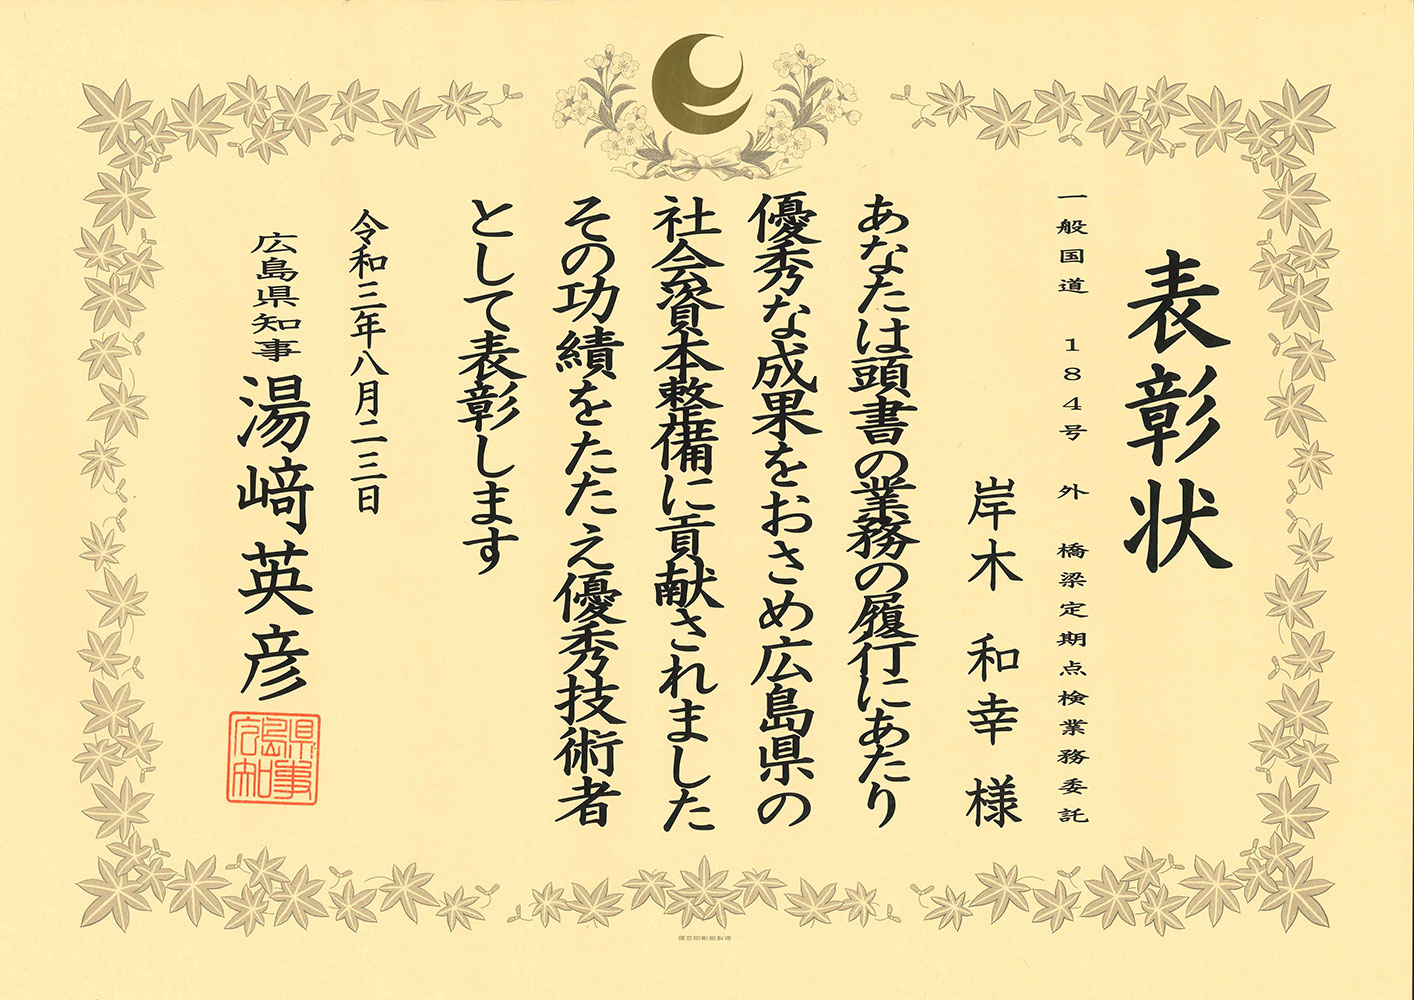 表彰状
一般国道 184号 外 橋梁定期点検業務委託
岸木 和幸 様
あなたは頭書の業務の履行にあたり
優秀な成果をおさめ広島県の
社会資本整備に貢献されました
その功績をたたえ優秀技術者
として表彰します
令和三年八月二三日
広島県知事 湯﨑英彦
広島県知事
国立印刷局製造